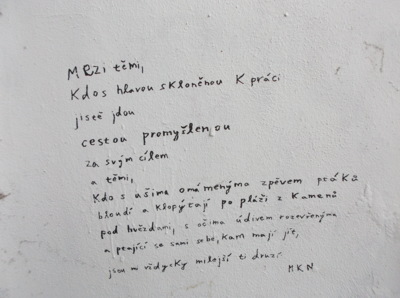 Mezi těmi,
Kdo s hlavou skloněnou k práci
jistě jdou
cestou promyšlenou
za svým cílem
a těmi,
Kdo s ušima omámenýma zpěvem ptáků
bloudí a klopýtají po pláži z kamenů
pod hvězdami, s očima údivem rozevřenýma
a ptající se sami sebe, kam mají jít,
jsou mi vždycky milejší ti druzí.
MKN